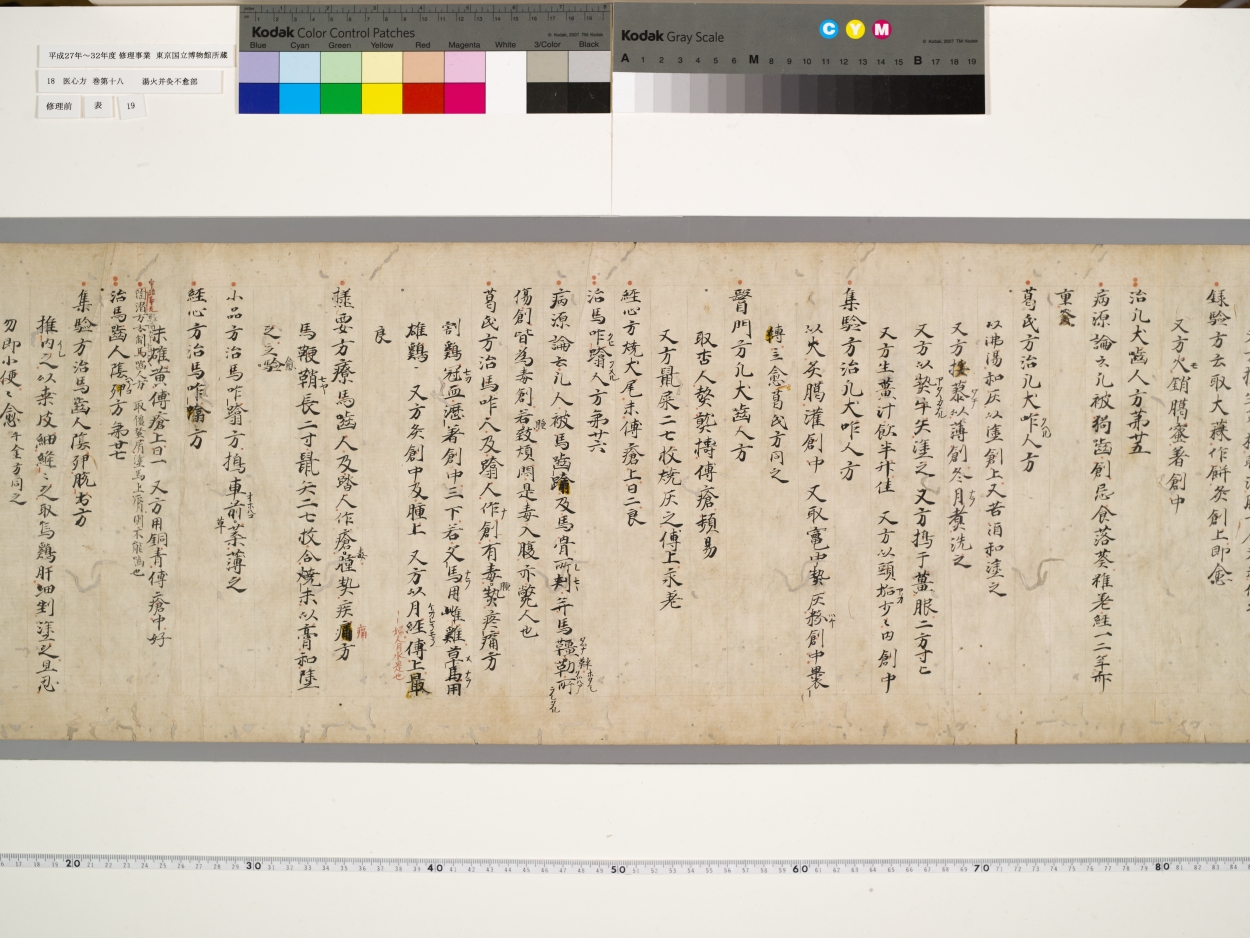 平成27年～32年度 修理事業 東京国立博物館所蔵
18 医心方 巻第十八 湯火并灸不愈部
修理前 表 19
Kodak Color Control Patches
Blue Cyan Green Yellow Red Magenta White 3/Color Black
© Kodak, 2007 TM: Kodak
Kodak Gray Scale
C Y M
© Kodak, 2007 TM: Kodak
A 1 2 3 4 5 6 M 8 9 10 11 12 13 14 15 B 17 18 19
録驗方云取大蒜作餅灸創上即愈
又方火銷臈蜜著創中
治凡犬齧人方第廿五
病源論云凡被狗齧創忌食落葵雖差経一二年亦
重發
葛氏方治凡犬咋人方
以沸湯和灰以塗創上又苦酒和塗之
又方 以薄創冬月煮洗之
又方以熱牛矢塗之 又方擣干薑服二方寸匕
又方生薑汁飲半升佳 又方以頭垢少々内創中
集驗方治凡犬咋人方
以火炙臈灌創中 又取竃中熱灰粉創中裹
轉三愈葛氏方同之
醫門方凡犬齧人方
取杏人 傅瘡頻易
又方鼠屎二七枚焼灰之傅上永差
経心方焼犬尾末傅瘡上日二良
治馬咋蹹人方第廿六
病源論云凡人被馬齧蹹及馬骨所刺并馬 勒所
傷創皆為毒創若致煩悶是毒入腹亦斃人也
葛氏方治馬咋人及蹹人作創有毒熱疼痛方
割鷄冠血瀝著創中三下若父馬用雌雞草馬用
雄鷄 又方灸創中及腫上 又方以月経傅上最
良
婦人月水是也
極要方療馬齧人及踏人作瘡 熱疾痛方
馬鞭鞘長二寸鼠矢二七枚合焼末以膏和塗
之立驗
小品方治馬咋蹹方擣車前葉薄之
経心方治馬咋蹹方
末雄黄傅瘡上日一 又方用銅青傅瘡中好
治馬齧人陰卵方第廿七
集驗方治馬齧人陰卵脱出方
推内之以桒皮細縫之取烏鷄肝細剉塗之且忍
勿即小便々愈 千金方同之
20 30 40 50 60 70 80